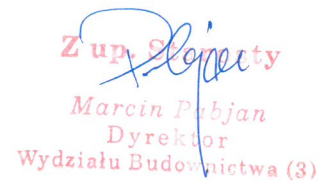 Z up. Starosty
Marcin Pabjan
Dyrektor
Wydziału Budownictwa (3)